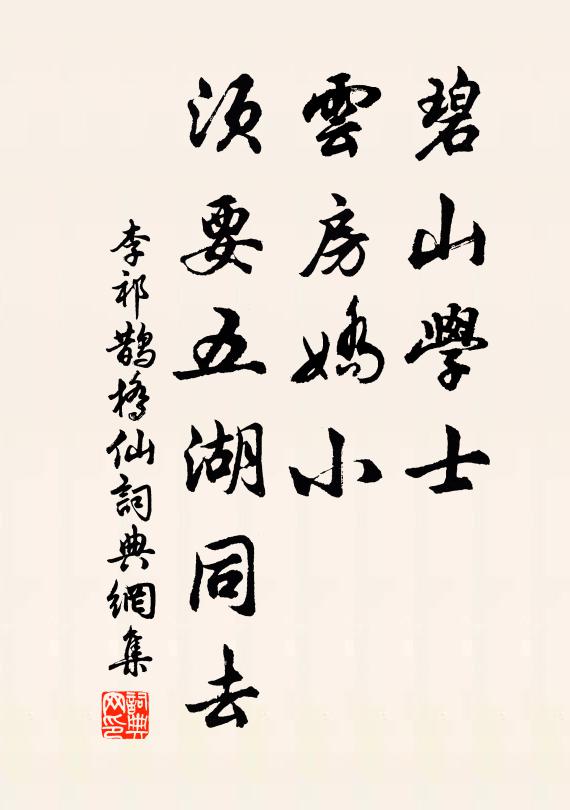 碧山學士
雲房嬌小
須要五湖同去
李祁鵲橋仙詞典網集
詞典
网印